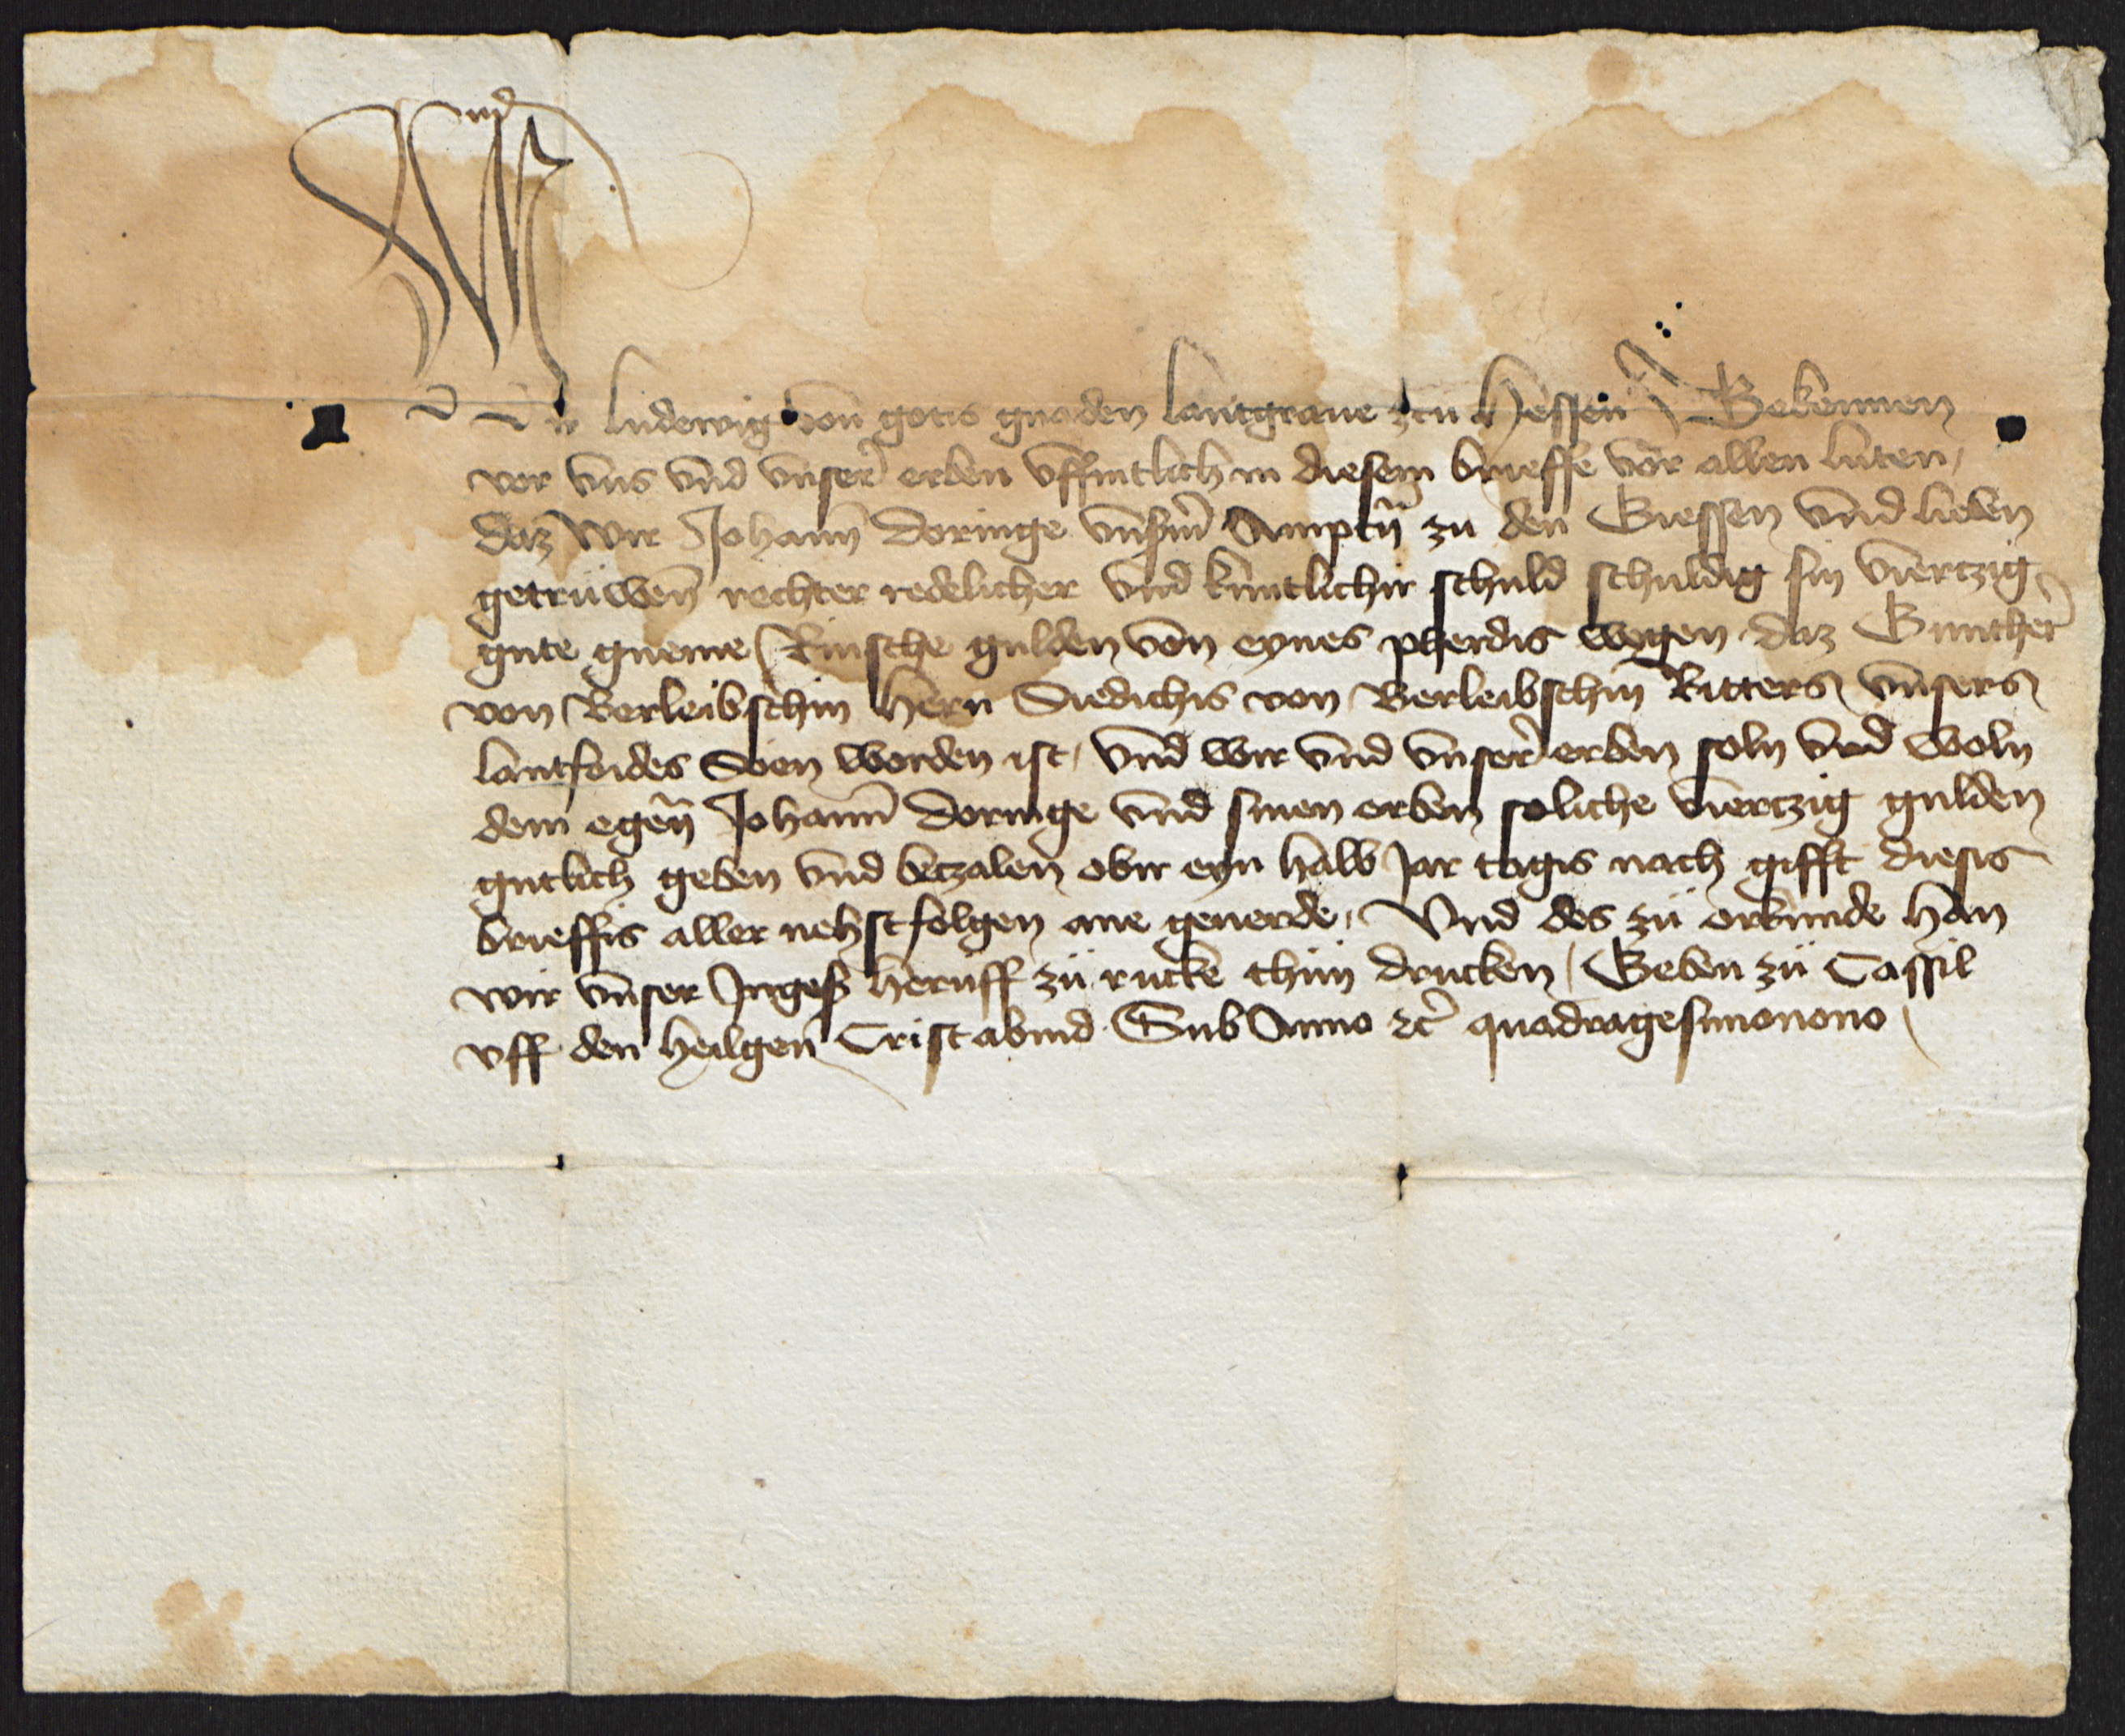 Wir ludewig von gotis gnaden lantgraue zcu Hessen Bekennen
vor vns vnd vnser erben vffintlich in diesem brieffe vor allen luten,
daz wir Johann doringe vnsm Amptm zu den Giessen vnd lieben
getruwen rechter redelicher vnd kuntlichir schuld schuldig sin viertzig
gute gneme Rinsche gulden von eynes pherdis wegen daz Gunther
von Berleibschin Hern Siedichis von Berleibschin Ritters vnsers
lantfoides Soen worden ist, vnd wir vnd vnser erben soln vnd woln
dem egen Johann doringe vnd sinen erben soliche viertzig gulden
gutlich geben vnd betzalen obir eyn halb Jar tagis nach gifft diesis
brieffis aller nehst folgen ane geuerde, Vnd des zu orkunde han
wir vnser Ingeß heruff zu rucke thun drucken, Geben zu Cassil
vff den heilgen Cristabind Sub Anno etc quadragesimonono